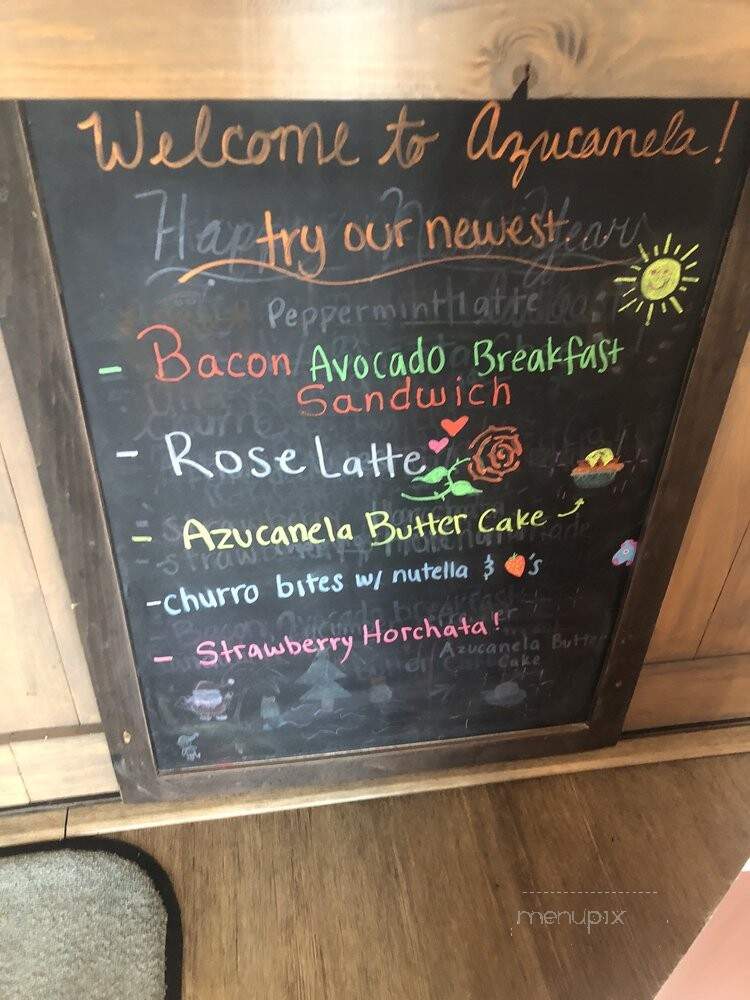 Welcome to Azucanela!
Happy New Year
try our newest...
Peppermint Latte
- Bacon Avocado Breakfast
Sandwich
- Rose Latte
- Azucanela Butter Cake
-churro bites w/ nutella & 's
- Strawberry Horchata!
Azucanela Butter
Cake
menupix